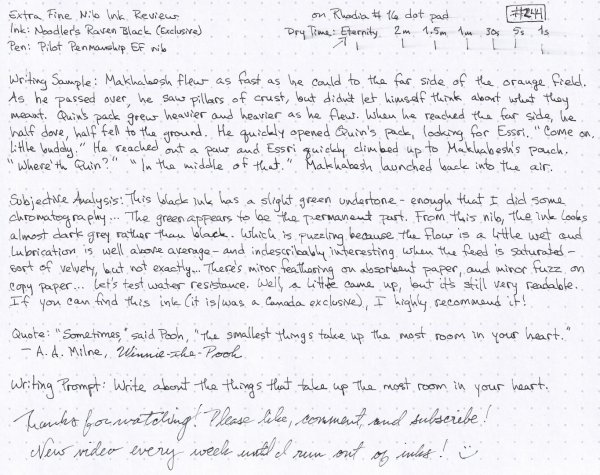 Extra Fine Nib Ink Review on Rhodia #16 dot pad #244
Ink: Noodler's Raven Black (Exclusive) Dry Time: Eternity 2m 1.5m 1m 30s 5s 1s
Pen: Pilot Penmanship EF nib
Writing Sample: Makhabesh flew as fast as he could to the far side of the orange field.
As he passed over, he saw pillars of crust, but didn't let himself think about what they
meant. Quin's pack grew heavier and heavier as he flew. When he reached the far side, he
half dove, half fell to the ground. He quickly opened Quin's pack, looking for Essri. "Come on,
little buddy." He reached out a paw and Essri quickly climbed up to Makhabesh's pouch.
"Where'th Quin?" "In the middle of that." Makhabesh launched back into the air.
Subjective Analysis: This black ink has a slight green undertone - enough that I did some
chromatography... The green appears to be the permanent part. From this nib, the ink looks
almost dark grey rather than black. Which is puzzling because the flow is a little wet and
lubrication is well above average - and indescribably interesting when the feed is saturated -
sort of velvety, but not exactly... There's minor feathering on absorbent paper, and minor fuzz on
copy paper... Let's test water resistance. Well, a little came up, but it's still very readable.
If you can find this ink (it is/was a Canada exclusive), I highly recommend it!
Quote: "Sometimes," said Pooh, "the smallest things take up the most room in your heart."
- A. A. Milne, Winnie-the-Pooh
Writing Prompt: Write about the things that take up the most room in your heart.
Thanks for watching! Please like, comment, and subscribe!
New video every week until I run out of inks! :)